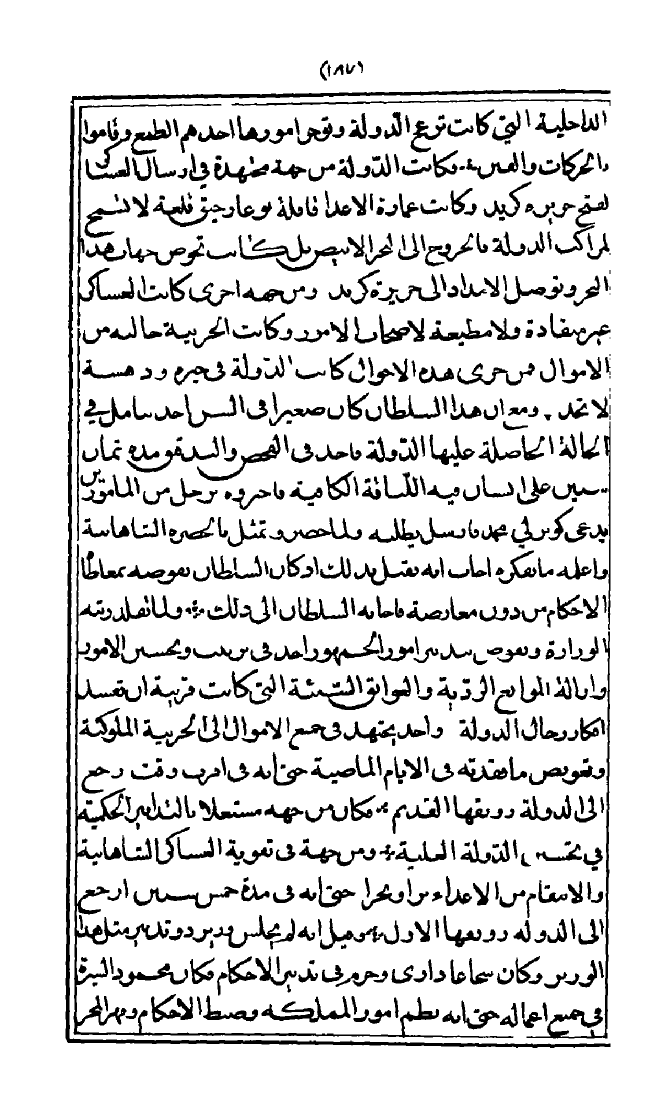 (١٨٧)
الداخلية التي كانت تزعج الدولة وتوجر امورها احدهم الطمع وقاموا
بالحركات والفتن ؞ فكانت الدولة من جهة مجتهدة في ارسال العساكر
لفتح جزيرة كريد وكانت عمارة الاعدا قافلة بوغار جيق قلعة لا تسمح
لمراكب الدولة بالخروج الى البحر الابيض بل كانت تحوص جهات هذا
البحر وتوصل الامداد الى جزيرة كريد ومن جهه اخرى كانت العساكر
غير منقادة ولا مطيعة لاصحاب الامور وكانت الخزينة خاليه من
الاموال فمن جرى هذه الاحوال كانت الدولة في حيره ودهسة
لا تحد . ومع ان هذا السلطان كان صغيرا في السن اخذ يتامل في
الحالة الحاصلة عليها الدولة فاخذ في الفحص والتدقيق مده ثمان
سنين على انسان فيه اللياقة الكافية فاخبروه برجل من المامورين
يدعى كوبرلي محمد فارسل يطلبه ولما حضر وتمثل بالحضره الشاهانية
واعلمه ما بفكره اجاب انه يقبل بذلك اذ كان السلطان يفوضه بمعاطاة
الاحكام من دون معارضة فاجابه السلطان الى ذلك ؞ ولما تقلد رتبه
الوزارة وتفوض بتدبير امور الجمهور اخذ في ترتيب وتحسين الامور
وازالة الموانع الردية والعوايق الشيئة التي كانت قريبة ان تفسد
افكار رجال الدولة واخذ يجتهد في جمع الاموال الى الخزينة الملوكية
وتعويض ما فقدته في الايام الماضية حتى انه في اقرب وقت رجع
الى الدولة رونقها القديم ؞ فكان من جهه مستغلا بالتدابير الحكمية
في تحسين الدولة العلية ؞ ومن جهة في تقوية العساكر الشاهانية
والانتقام من الاعداء برا وبحرا حتى انه في مدة خمس سنين ارجع
الى الدوله رونقها الاول ؞ وقيل انه لم يجلس وزير ذو تدبير مثل هذا
الوزير وكان شجاعا ذا راى وحزم في تدبير الاحكام فكان محمود السيرة
في جميع اعماله حتى انه نظم امور المملكه وضبط الاحكام وقهر المجر